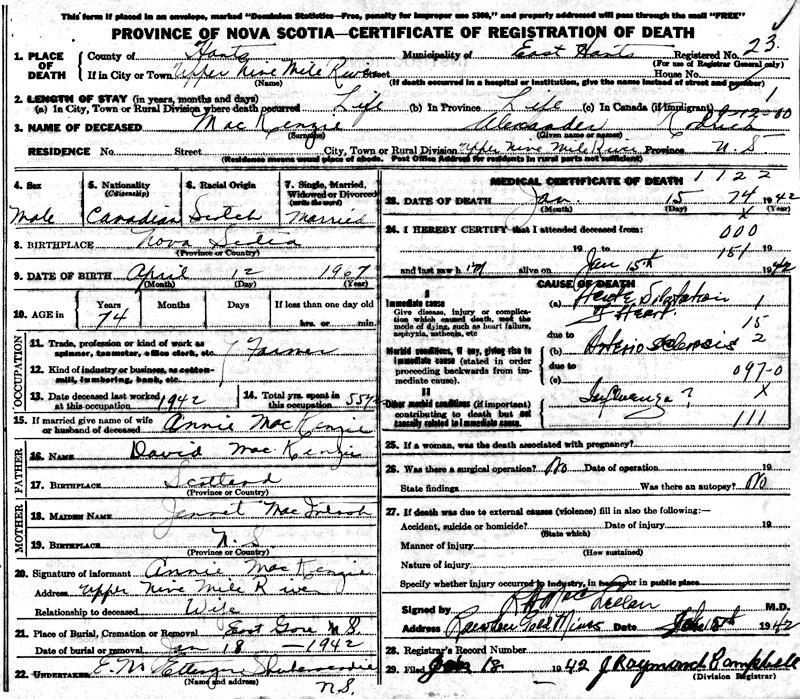 This form if placed in an envelope, marked "Dominion Statistics—Free, penalty for improper use $300," and properly addressed will pass through the mail "FREE"
PROVINCE OF NOVA SCOTIA—CERTIFICATE OF REGISTRATION OF DEATH
1. PLACE OF DEATH County of Hants Municipality of East Hants Registered No. 23
(For use of Registrar General only)
If in City or Town Upper Nine Mile River Street House No.
(Name) (If death occurred in a hospital or institution, give the name instead of street and number)
2. LENGTH OF STAY (in years, months and days)
(a) In City, Town or Rural Division where death occurred Life (b) In Province Life (c) In Canada (if immigrant) 1
3. NAME OF DECEASED MacKenzie Alexander Rodrick
(Surname) (Given name or names)
RESIDENCE No. Street City, Town or Rural Division Upper Nine Mile River Province N.S.
(Residence means usual place of abode. Post Office Address for residents in rural parts not sufficient)
4. Sex Male
5. Nationality (Citizenship) Canadian
6. Racial Origin Scotch
7. Single, Married, Widowed or Divorced (write the word) Married
8. BIRTHPLACE Nova Scotia
(Province or Country)
9. DATE OF BIRTH April 12 1967
(Month) (Day) (Year)
10. AGE in Years Months Days If less than one day old
74 hrs. or min.
OCCUPATION
11. Trade, profession or kind of work as spinner, teamster, office clerk, etc. Farmer
12. Kind of industry or business, as cotton-mill, lumbering, bank, etc.
13. Date deceased last worked at this occupation 1942
14. Total yrs. spent in this occupation
15. If married give name of wife or husband of deceased Annie MacKenzie
FATHER
16. NAME David MacKenzie
17. BIRTHPLACE Scotland
(Province or Country)
MOTHER
18. MAIDEN NAME Jennet
19. BIRTHPLACE N.S.
(Province or Country)
20. Signature of informant Annie MacKenzie
Address Upper Nine Mile River
Relationship to deceased Wife
21. Place of Burial, Cremation or Removal East Gore N.S.
Date of burial or removal Jan 18 — 1942
22. UNDERTAKER Shubenacadie
(Name and address) N.S.
MEDICAL CERTIFICATE OF DEATH 1122
23. DATE OF DEATH Jan. 15 74 1942
(Month) (Day) X (Year)
24. I HEREBY CERTIFY that I attended deceased from: 000
19 to 151 19
and last saw him alive on Jan 15th 1942
CAUSE OF DEATH
I
Immediate cause
Give disease, injury or complication which caused death, not the mode of dying, such as heart failure, asphyxia, asthenia, etc
(a) Acute Dilatation of Heart. 1
15
due to
Morbid conditions, if any, giving rise to immediate cause (stated in order proceeding backwards from immediate cause).
(b) Arterio sclerosis 2
due to
(c) 097-0
II
Other morbid conditions (if important) contributing to death but not causally related to immediate cause.
Influenza? X
111
25. If a woman, was the death associated with pregnancy?
26. Was there a surgical operation? No Date of operation 19
State findings Was there an autopsy? No
27. If death was due to external causes (violence) fill in also the following:—
Accident, suicide or homicide? Date of injury 19
(State which)
Manner of injury
(How sustained)
Nature of injury
Specify whether injury occurred in industry, in home, or in public place
Signed by M.D.
Address Gold Mines Date 1942
28. Registrar's Record Number
29. Filed Jan 18 1942 J Raymond Campbell
(Division Registrar)